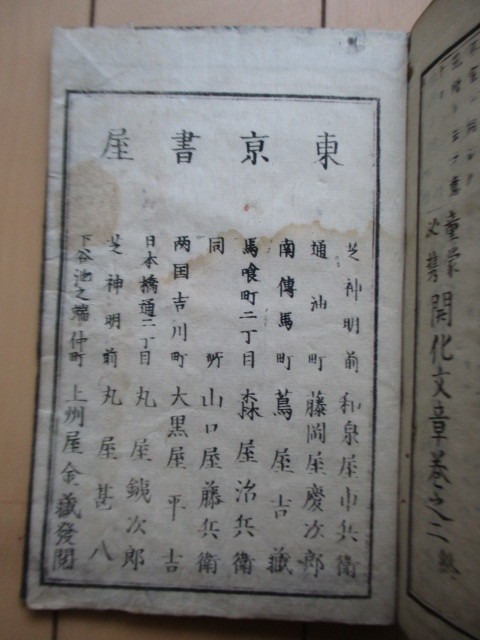 童蒙必携 開化文章巻之二 終
東京書屋
芝神明前 和泉屋市兵衛
通油町 藤岡屋慶次郎
南傳馬町 蔦屋吉藏
馬喰町二丁目 森屋治兵衛
同所 山口屋藤兵衛
両国吉川町 大黒屋平吉
日本橋通二丁目 丸屋鉄次郎
芝神明前 丸屋甚八
下谷池之端仲町 上州屋金藏發閲